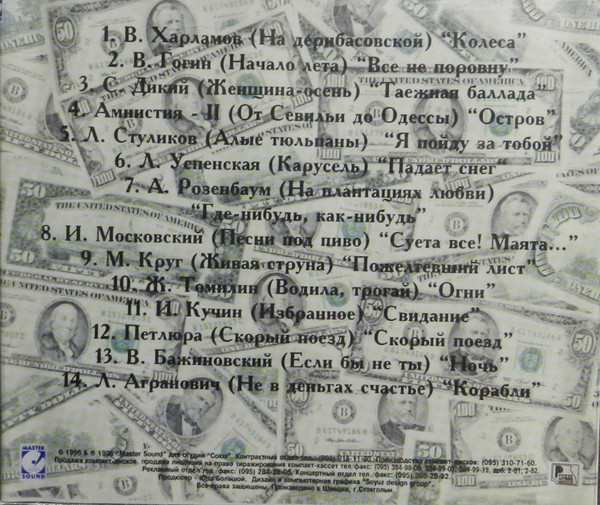 1. В. Харламов (На дерибасовской) "Колеса"
2. В. Гогин (Начало лета) "Все не поровну"
3. С. Дикий (Женщина-осень) "Таежная баллада"
4. Амнистия - II (От Севильи до Одессы) "Остров"
5. Л. Стуликов (Алые тюльпаны) "Я пойду за тобой"
6. Л. Успенская (Карусель) "Падает снег"
7. А. Розенбаум (На плантациях любви)
"Где-нибудь, как-нибудь"
8. И. Московский (Песни под пиво) "Суета все! Маята..."
9. М. Круг (Живая струна) "Пожелтевший лист"
10. Ж. Томилин (Водила, трогай) "Огни"
11. И. Кучин (Избранное) "Свидание"
12. Петлюра (Скорый поезд) "Скорый поезд"
13. В. Бажиновский (Если бы не ты) "Ночь"
14. Л. Агранович (Не в деньгах счастье) "Корабли"
MASTER
SOUND
"Master Sound" для студии "Союз". Контрактный отдел (095) Производство компакт-дисков: (095) 310-71-60.
Продажа компакт-дисков, продажа лицензий на право тиражирования компакт-кассет тел./факс: (095)
Рекламный отдел тел./факс: (095) Концертный отдел тел./факс: (095)
Продюсер - Юрa Большой. Дизайн и компьютерная графика "Soyuz design group".
Все права защищены. Произведено в Швеции, г.Стокгольм.
THE UNITED STATES OF AMERICA
THE UNITED STATES OF AMERICA
50
100